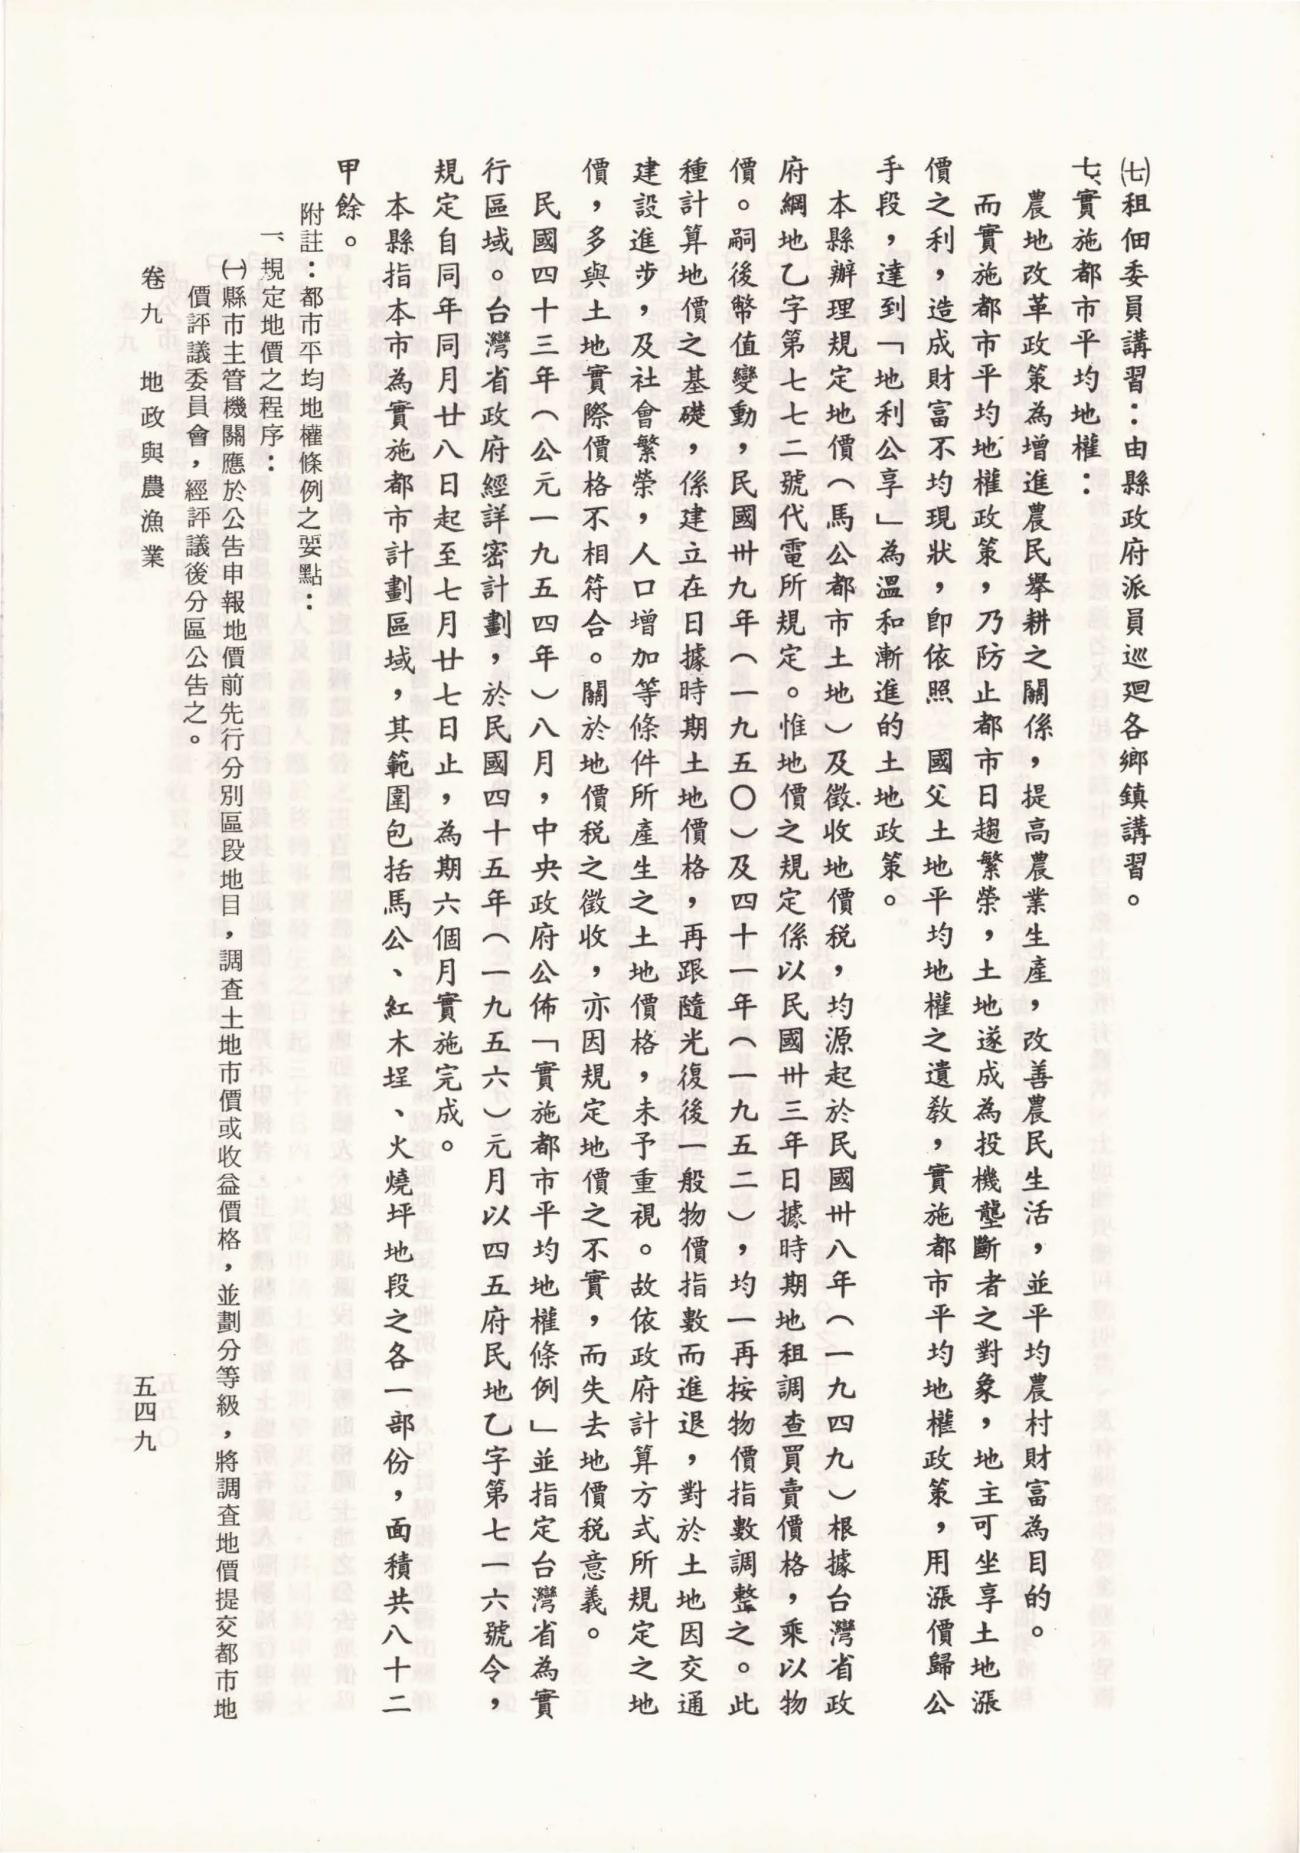 ㈦租佃委員講習：由縣政府派員巡廻各鄉鎮講習。
七、實施都市平均地權：
農地改革政策為增進農民擧耕之關係，提高農業生產，改善農民生活，並平均農村財富為目的。
而實施都市平均地權政策，乃防止都市日趨繁榮，土地遂成為投機壟斷者之對象，地主可坐享土地漲
價之利，造成財富不均現狀，卽依照　國父土地平均地權之遺教，實施都市平均地權政策，用漲價歸公
手段，達到「地利公享」為溫和漸進的土地政策。
本縣辦理規定地價（馬公都市土地）及徵收地價稅，均源起於民國卅八年（一九四九）根據台灣省政
府綱地乙字第七七二號代電所規定。惟地價之規定係以民國卅三年日據時期地租調查買賣價格，乘以物
價。嗣後幣值變動，民國卅九年（一九五〇）及四十一年（一九五二），均一再按物價指數調整之。此
種計算地價之基礎，係建立在日據時期土地價格，再跟隨光復後一般物價指數而進退，對於土地因交通
建設進步，及社會繁榮，人口增加等條件所產生之土地價格，未予重視。故依政府計算方式所規定之地
價，多與土地實際價格不相符合。關於地價稅之徵收，亦因規定地價之不實，而失去地價稅意義。
民國四十三年（公元一九五四年）八月，中央政府公佈「實施都市平均地權條例」並指定台灣省為實
行區域。台灣省政府經詳密計劃，於民國四十五年（一九五六）元月以四五府民地乙字第七一六號令，
規定自同年同月廿八日起至七月廿七日止，為期六個月實施完成。
本縣指本市為實施都市計劃區域，其範圍包括馬公、紅木埕、火燒坪地段之各一部份，面積共八十二
甲餘。
附註：都市平均地權條例之要點：
一、規定地價之程序：
㈠縣市主管機關應於公告申報地價前先行分別區段地目，調査土地市價或收益價格，並劃分等級，將調査地價提交都市地
價評議委員會，經評議後分區公告之。
卷九　地政與農漁業
五四九